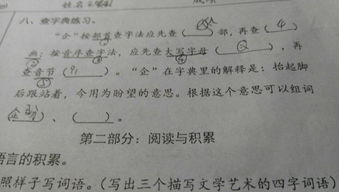 八、查字典练习。
"企"按部首查字法应先查( )部,再查(4)
画;按音序查字法,应先查大写字母( ),再
查音节( )。"企"在字典里的解释是:抬起脚
后跟站着,今用为盼望的意思。根据这个意思可以组词
( )、( )。
第二部分:阅读与积累
语言的积累。
照样子写词语。(写出三个描写文学艺术的四字词语)